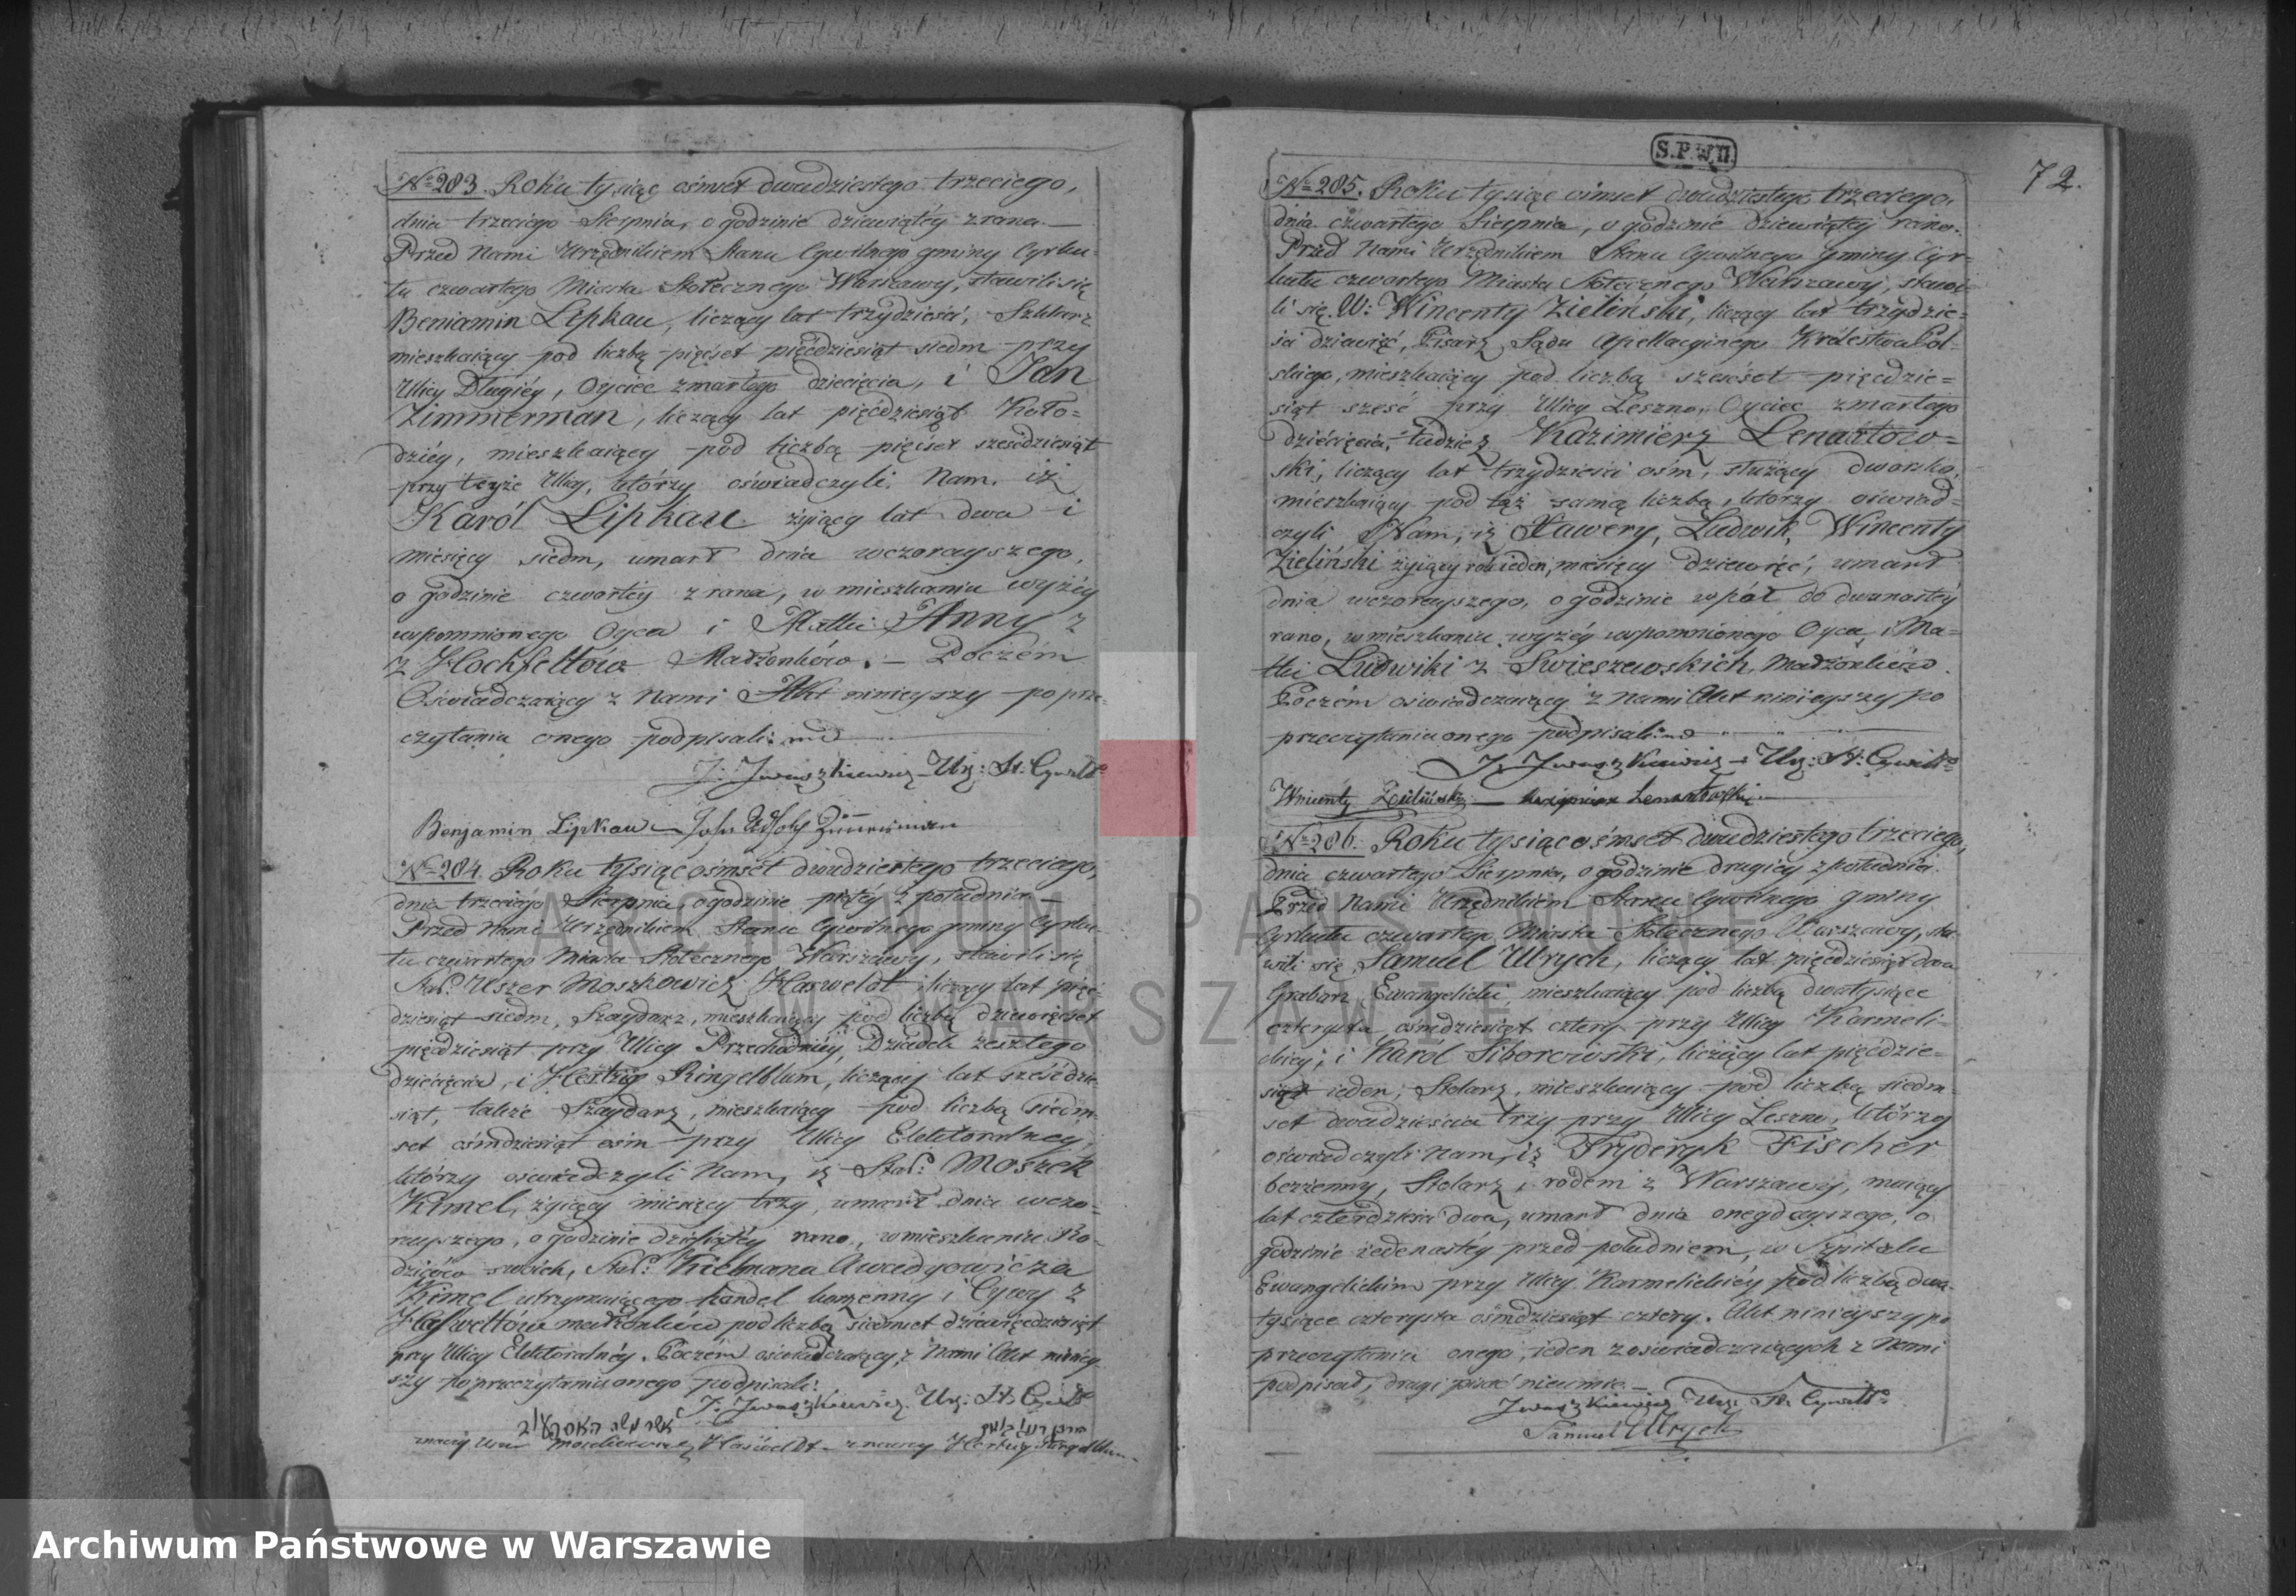 No 283. Roku tysiąc ośmset dwudziestego trzeciego,
dnia trzeciego Sierpnia, o godzinie dziewiątéy z rana. —
Przed Nami Urzędnikiem Stanu Cywilnego gminy Cyrku-
łu czwartego Miasta Stołecznego Warszawy, stawili się
Beniamin Lipkau, liczący lat trzydzieści,
mieszkaiący pod liczbą pięćset pięćdziesiąt siedm przy
Ulicy Długiéy, Oyciec zmarłego dziecięcia, i Jan
Zimmerman, liczący lat pięćdziesiąt Koło-
dziéy, mieszkaiący pod liczbą pięćset sześćdziesiąt
przy teyże Ulicy, którzy oświadczyli Nam, iż
Karól Lipkau żyiący lat dwa i
miesięcy siedm, umarł dnia wczorayszego,
o godzinie czwartéy z rana, w mieszkaniu wyżéy
wspomnionego Oyca i Matki Anny z
z Hochfeltów Małżonków. — Poczém
Oświadczaiący z Nami Akt ninieyszy po prze-
czytaniu onego podpisali:
J: Jwaszkiewicz Urz: St: Cywil:
Benjamin Lipkau — Zimmerman
No 284. Roku tysiąc ośmset dwudziestego trzeciego,
dnia trzeciego Sierpnia, o godzinie piątéy z południa —
Przed Nami Urzędnikiem Stanu Cywilnego gminy Cyrku-
łu czwartego Miasta Stołecznego Warszawy, stawili się
Star: Uszer Moszkowicz Hasweldt liczący lat pięć-
dziesiąt siedm, Szaydarz, mieszkaiący pod liczbą dziewięćset
pięćdziesiąt przy Ulicy Przechodniéy, Dziadek zeszłego
dziecięcia, i Hertzig Ringelblum, liczący lat sześćdzie-
siąt, także Szaydarz, mieszkaiący pod liczbą siedm-
set ośmdziesiąt ośm przy Ulicy Elektoralney,
którzy oświadczyli Nam, iż Star: Moszek
Kimel, żyiący miesięcy trzy, umarł dnia wczo-
rayszego, o godzinie dziesiątéy rano, w mieszkaniu Ro-
dziców swoich, Star: Kielmana Awadyowicza
Kimel utrzymuiącego handel korzenny i Cywy z
Hasweltów małżonków pod liczbą siedmset dziewięćdziesiąt
przy Ulicy Elektoralnéy. Poczém oświadczaiący z Nami Akt niniey-
szy po przeczytaniu onego podpisali:
J: Jwaszkiewicz Urz: St: Cywil:
Hasweldt — Hertzig Ringelblum
S.P.W.II.
72.
No 285. Roku tysiąc ośmset dwudziestego trzeciego,
dnia czwartego Sierpnia, o godzinie dziewiątéy rano.
Przed Nami Urzędnikiem Stanu Cywilnego Gminy Cyr-
kułu czwartego Miasta Stołecznego Warszawy, stawi-
li się W: Wincenty Zieliński, liczący lat trzydzie-
ści dziewięć, Pisarz Sądu Apellacyinego Królestwa Pol-
skiego, mieszkaiący pod liczbą sześćset pięćdzie-
siąt sześć przy Ulicy Leszno, Oyciec zmarłego
dziecięcia, tudzież Kazimierz Lenartow-
ski, liczący lat trzydzieści ośm, służący dworski,
mieszkaiący pod tąż samą liczbą, którzy oświad-
czyli Nam, iż Xawery, Ludwik, Wincenty
Zieliński żyiący rok ieden, miesięcy dziewięć, umarł
dnia wczorayszego, o godzinie wpół do dwunastéy
rano, w mieszkaniu wyżéy wspomnionego Oyca i Ma-
tki Ludwiki z Swieszewskich Małżonków
Poczém oświadczaiący z Nami Akt ninieyszy po
przeczytaniu onego podpisali:
J: Jwaszkiewicz Urz: St: Cywil:
Wincenty Zieliński — Kazimierz Lenartoski —
No 286. Roku tysiąc ośmset dwudziestego trzeciego,
dnia czwartego Sierpnia, o godzinie drugiey z południa.
Przed Nami Urzędnikiem Stanu Cywilnego gminy
Cyrkułu czwartego Miasta Stołecznego Warszawy, sta-
wili się Samuel Ulrych, liczący lat pięćdziesiąt dwa
Grabarz Ewangelicki, mieszkaiący pod liczbą dwatysiące
czterysta ośmdziesiąt cztery przy Ulicy Karmeli-
ckiey; i Karól Siborowski, liczący lat pięćdzie-
siąt ieden, Stolarz, mieszkaiący pod liczbą siedm-
set dwadzieścia trzy przy Ulicy Leszno, którzy
oświadczyli Nam, iż Fryderyk Fischer
bezżenny, Stolarz, rodem z Warszawy, maiący
lat czterdzieści dwa, umarł dnia onegdayszego, o
godzinie iedenastéy przed południem, w Szpitalu
Ewangelickim przy Ulicy Karmelickiéy pod liczbą dwa-
tysiące czterysta ośmdziesiąt cztery. Akt ninieyszy po
przeczytaniu onego, ieden z oświadczaiących z Nami
podpisał, drugi pisać nieumie. —
Jwaszkiewicz Urz: St: Cywil:
Samuel Ulrych
ARCHIWUM PAŃSTWOWE
W WARSZAWIE
Archiwum Państwowe w Warszawie